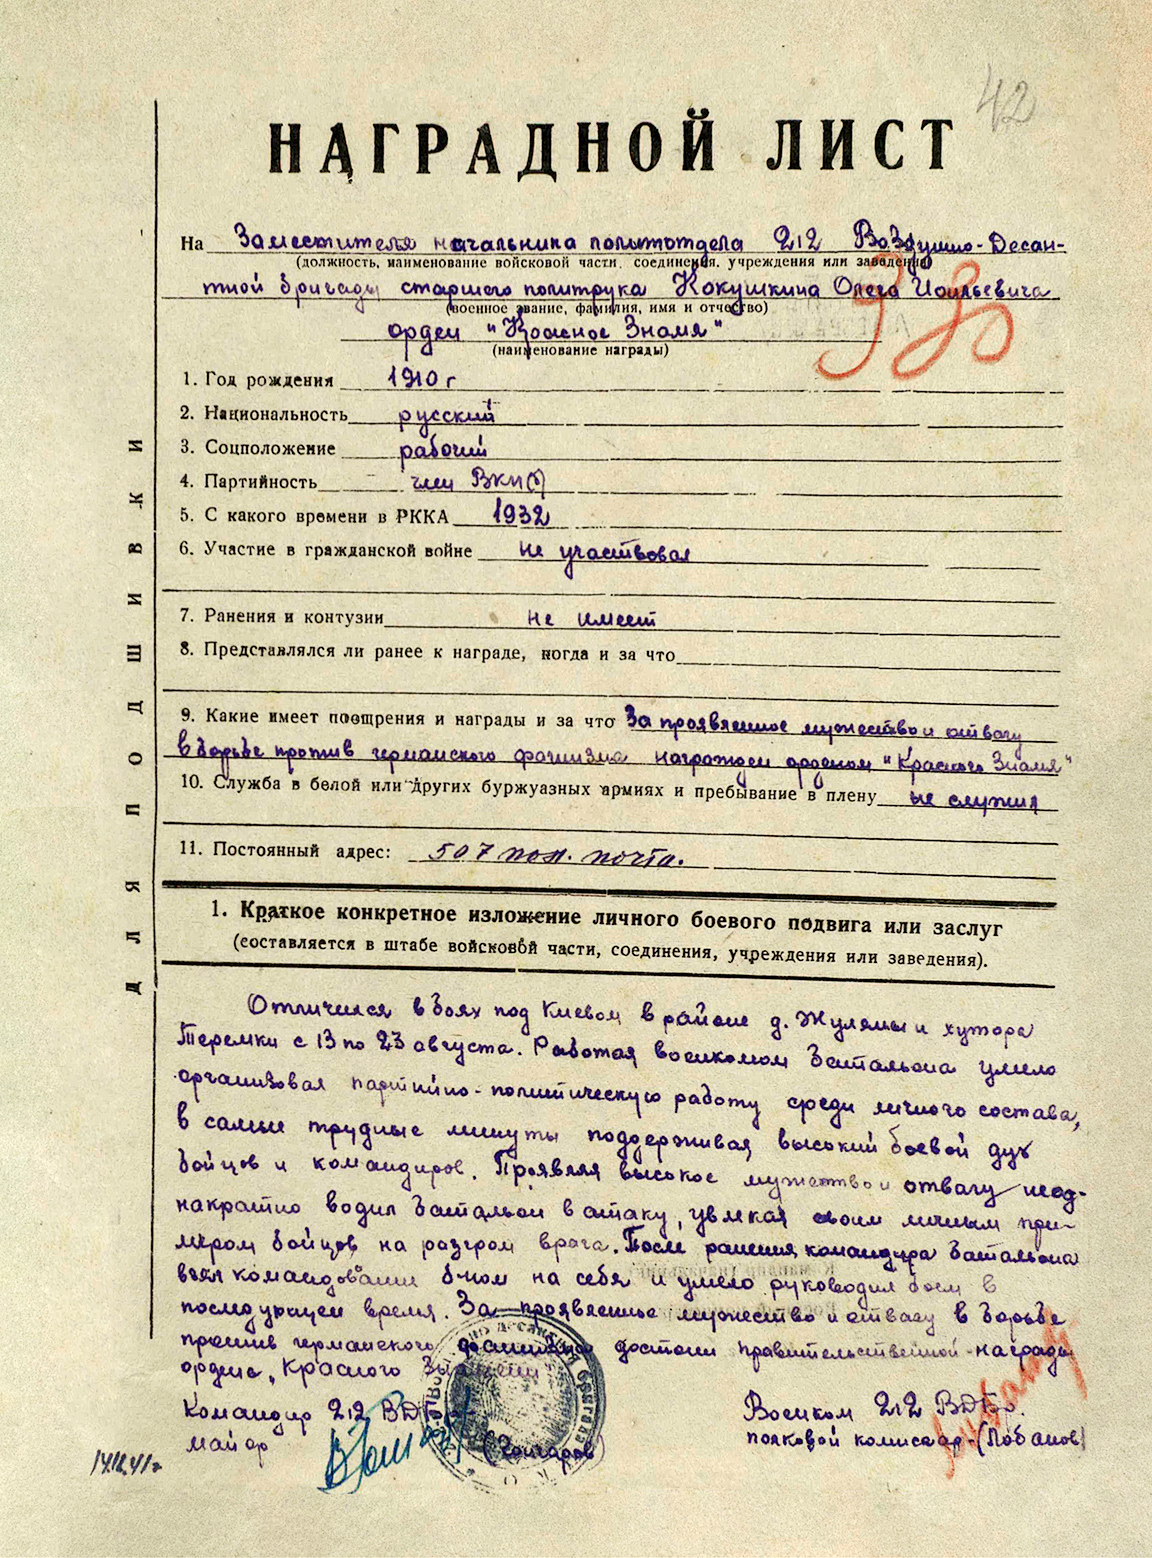 42
НАГРАДНОЙ ЛИСТ
На Заместителя начальника политотдела 212 Воздушно-Десан-
(должность, наименование войсковой части, соединения, учреждения или заведения)
тной бригады старшего политрука Кокушкина Олега
(военное звание, фамилия, имя и отчество)
орден "Красное Знамя"
(наименование награды)
1. Год рождения 1910 г
2. Национальность русский
3. Соцположение рабочий
4. Партийность член ВКП(б)
5. С какого времени в РККА 1932
6. Участие в гражданской войне не участвовал
7. Ранения и контузии не имеет
8. Представлялся ли ранее к награде, когда и за что
9. Какие имеет поощрения и награды и за что За проявленное мужество и отвагу
в борьбе против германского фашизма награжден орденом "Красного Знамя"
10. Служба в белой или других буржуазных армиях и пребывание в плену не служил
11. Постоянный адрес: 507 пол. почта.
1. Краткое конкретное изложение личного боевого подвига или заслуг
(составляется в штабе войсковой части, соединения, учреждения или заведения).
Отличился в боях под Киевом в районе д. Жуляны и хутора
Теремки с 13 по 23 августа. Работая военкомом батальона умело
организовал партийно-политическую работу среди личного состава,
в самые трудные минуты поддерживая высокий боевой дух
бойцов и командиров. Проявляя высокое мужество и отвагу неод-
накратно водил батальон в атаку, увлекая своим личным при-
мером бойцов на разгром врага. После ранения командира батальона
взял командование б-ном на себя и умело руководил боем в
последующем время. За проявленное мужество и отвагу в борьбе
против германского фашизма достоин правительственной награды
ордена "Красного Знамени"
Командир 212 ВДБр Военком 212 ВДБр.
майор (Гончаров) полковой комиссар-(Лобанов)
ДЛЯ ПОДШИВКИ